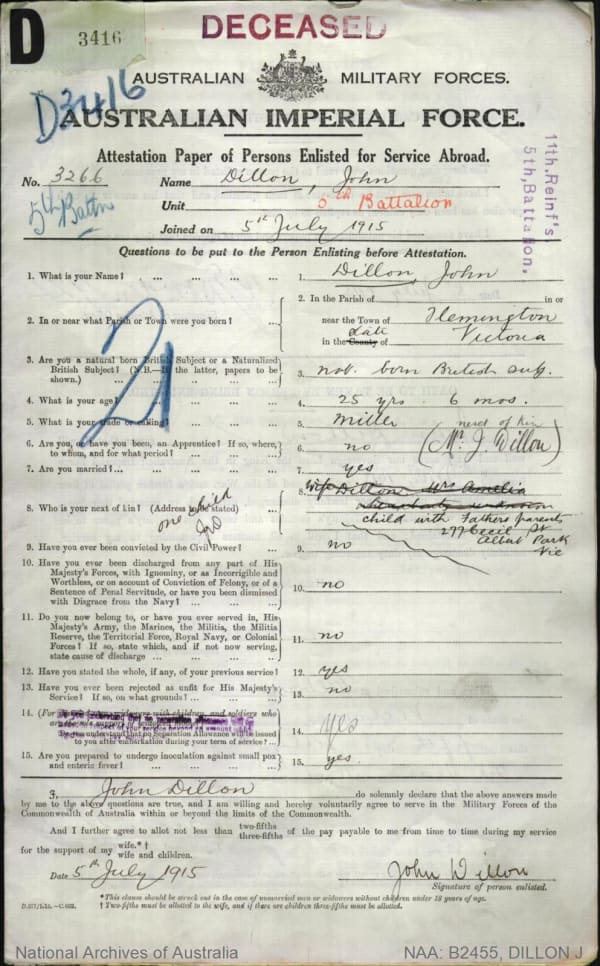 D
3416
DECEASED
D3416
AUSTRALIAN MILITARY FORCES.
AUSTRALIAN IMPERIAL FORCE.
Attestation Paper of Persons Enlisted for Service Abroad.
11th. Reinf's
5th, Battalion,
No. 3266 Name Dillon, John
5th Battn
Unit 5th Battalion
Joined on 5th July 1915
Questions to be put to the Person Enlisting before Attestation.
1. What is your Name? ... ... ... ...
1. Dillon, John
2. In or near what Parish or Town were you born? ...
2. In the Parish of in or
near the Town of Flemington
in the County of Victoria
3. Are you a natural born British Subject or a Naturalized
British Subject? (N.B.—If the latter, papers to be
shown.) ... ... ... ...
3. nat. born British subj.
4. What is your age? ... ... ... ...
4. 25 yrs 6 mos.
5. What is your trade or calling? ... ... ...
5. Miller
6. Are you, or have you been, an Apprentice? If so, where,
to whom, and for what period? ... ... ...
6. no
next of kin
(Mr J. Dillon)
7. Are you married? ... ... ... ...
7. yes
21
8. Who is your next of kin? (Address to be stated) ...
one child
8. Wife Dillon Mrs Amelia
unknown
child with Fathers parents
277 Cecil St
Albert Park
Vic
9. Have you ever been convicted by the Civil Power? ...
9. no
10. Have you ever been discharged from any part of His
Majesty's Forces, with Ignominy, or as Incorrigible and
Worthless, or on account of Conviction of Felony, or of a
Sentence of Penal Servitude, or have you been dismissed
with Disgrace from the Navy? ... ... ...
10. no
11. Do you now belong to, or have you ever served in, His
Majesty's Army, the Marines, the Militia, the Militia
Reserve, the Territorial Force, Royal Navy, or Colonial
Forces? If so, state which, and if not now serving,
state cause of discharge ... ... ...
11. no
12. Have you stated the whole, if any, of your previous service?
12. yes
13. Have you ever been rejected as unfit for His Majesty's
Service? If so, on what grounds? ... ...
13. no
14. (For widowers with children, and soldiers who
Do you understand that no Separation Allowance will be issued
to you after embarkation during your term of service? ...
14. yes
15. Are you prepared to undergo inoculation against small pox
and enteric fever? ... ... ... ...
15. yes.
I, John Dillon do solemnly declare that the above answers made
by me to the above questions are true, and I am willing and hereby voluntarily agree to serve in the Military Forces of the
Commonwealth of Australia within or beyond the limits of the Commonwealth.
And I further agree to allot not less than two-fifths three-fifths of the pay payable to me from time to time during my service
for the support of my wife.*† wife and children.
Date 5th July 1915
John Dillon
Signature of person enlisted.
* This clause should be struck out in the case of unmarried men or widowers without children under 18 years of age.
† Two-fifths must be allotted to the wife, and if there are children three-fifths must be allotted.
National Archives of Australia
NAA: B2455, DILLON J